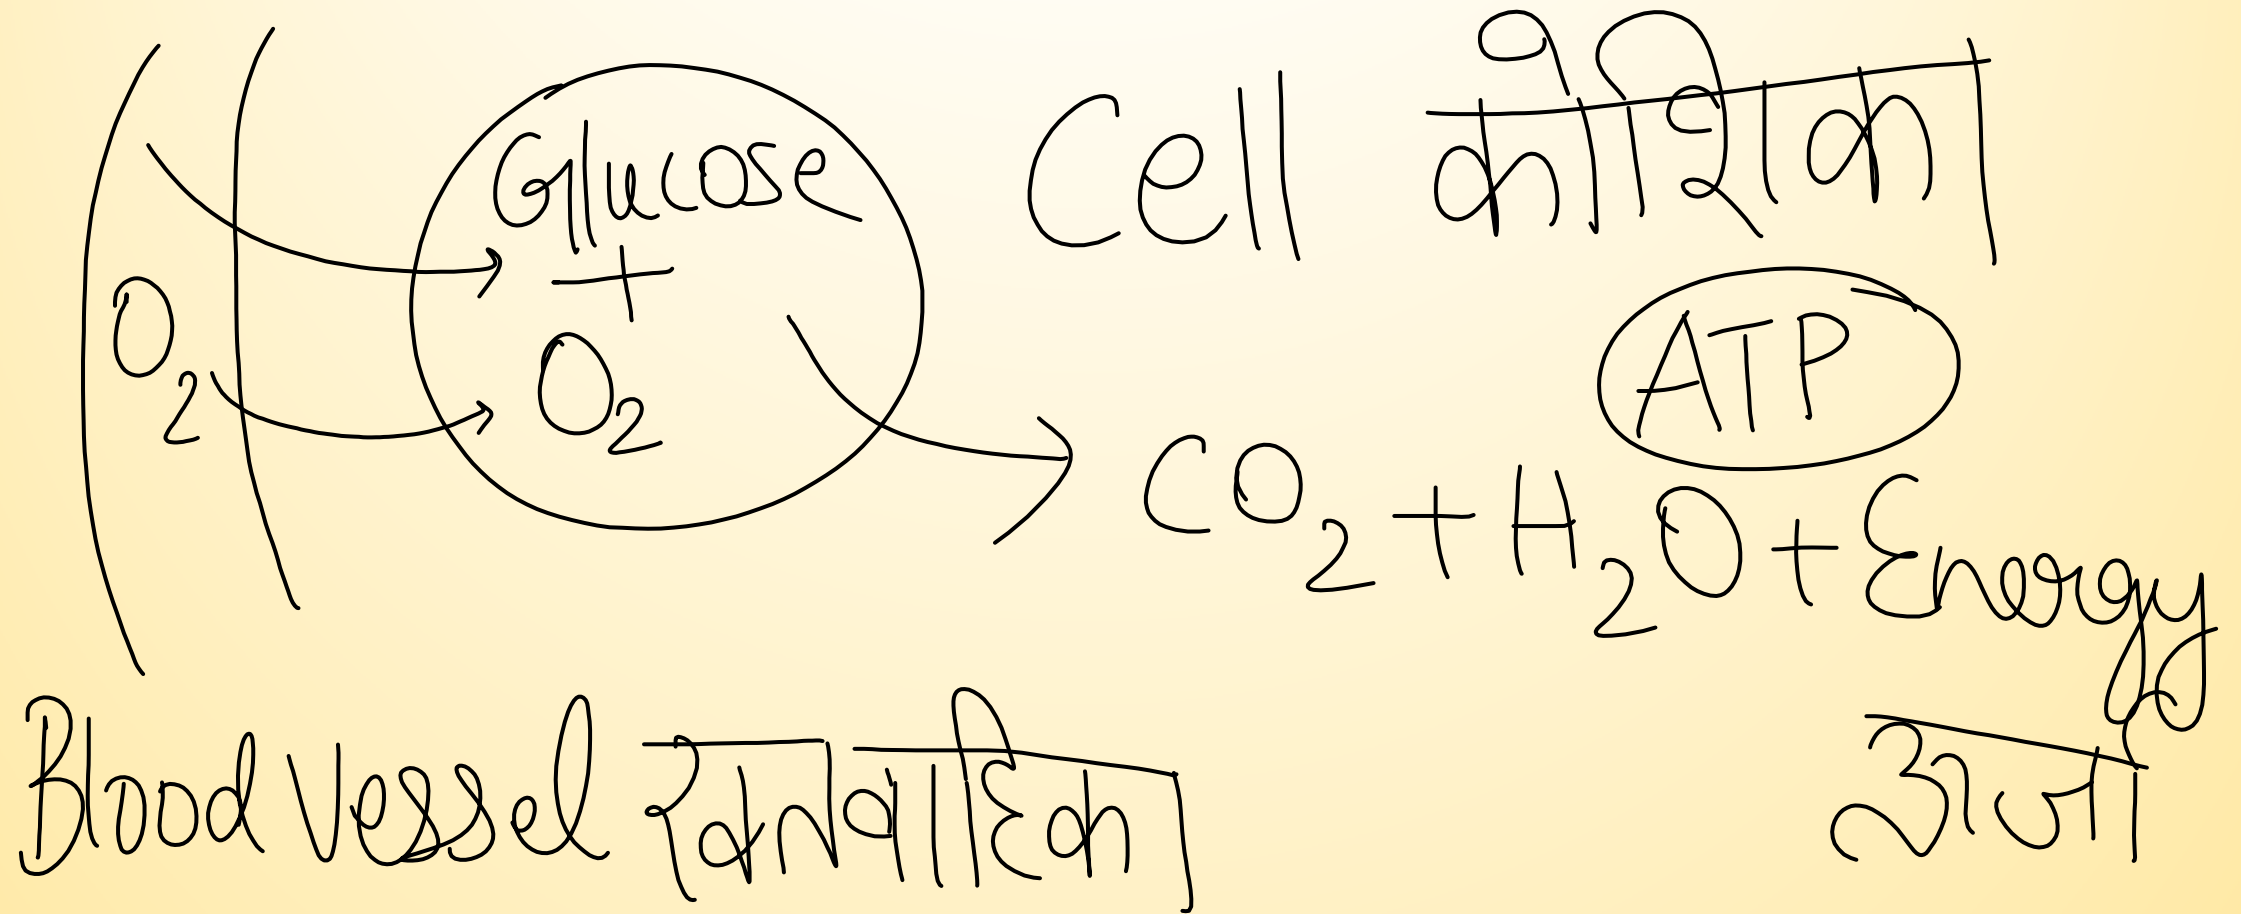 Glucose
+
O2
O2
Cell कोशिका
ATP
CO2 + H2O + Energy
ऊर्जा
Blood Vessel रक्तवाहिका